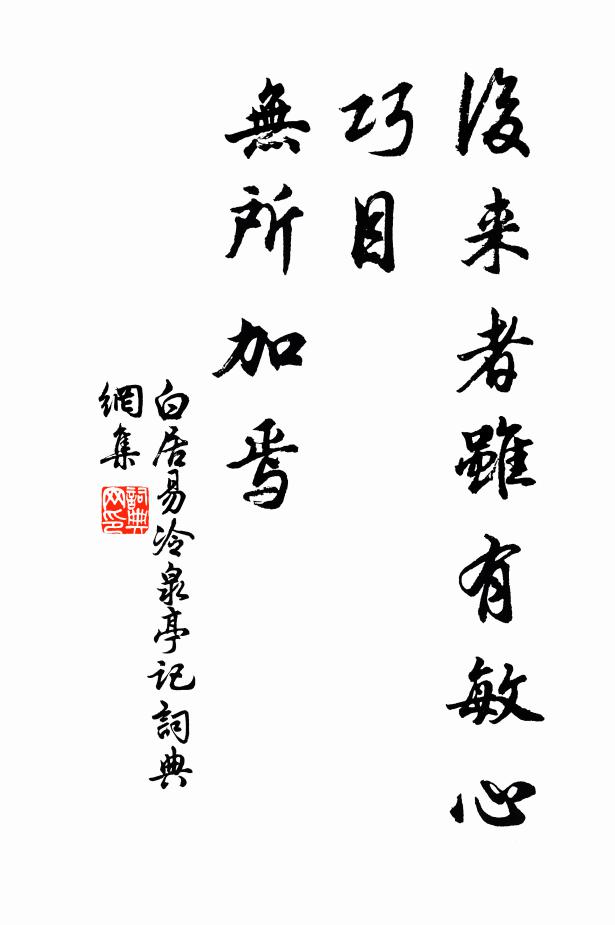 後来者雖有敏心
巧目
無所加焉
白居易冷泉亭記詞典
網集
詞典
网印